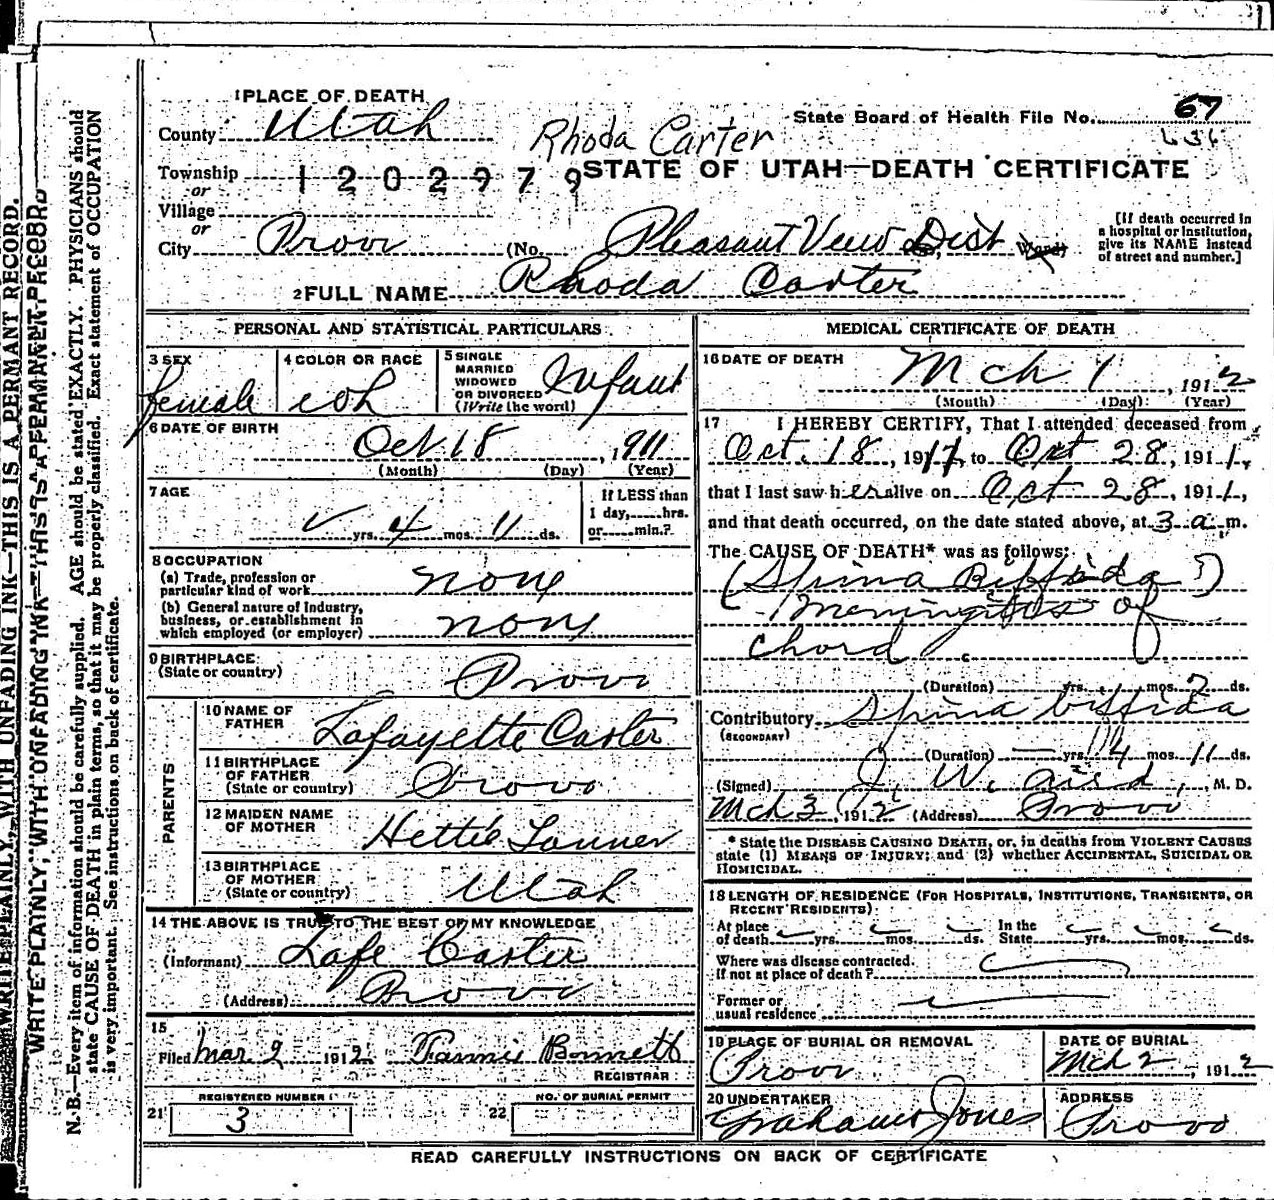 WRITE PLAINLY, WITH UNFADING INK—THIS IS A PERMANT RECORD.
WRITE PLAINLY, WITH UNFADING INK—THIS IS A PERMANENT RECORD
N. B.—Every item of information should be carefully supplied. AGE should be stated EXACTLY. PHYSICIANS should
state CAUSE OF DEATH in plain terms, so that it may be properly classified. Exact statement of OCCUPATION
is very important. See instructions on back of certificate.
1 PLACE OF DEATH
County Utah
State Board of Health File No. 67
Rhoda Carter
Township 1202979
STATE OF UTAH—DEATH CERTIFICATE
or
Village
or
City Provo (No. Pleasant View Dist Ward)
[If death occurred in
a hospital or institution,
give its NAME instead
of street and number.]
2 FULL NAME Rhoda Carter
PERSONAL AND STATISTICAL PARTICULARS
3 SEX
female
4 COLOR OR RACE
5 SINGLE
MARRIED
WIDOWED
OR DIVORCED
(Write the word)
Infant
6 DATE OF BIRTH
Oct 18, 1911
(Month) (Day) (Year)
7 AGE
yrs. 4 mos. 11 ds.
If LESS than
1 day, hrs.
or min.?
8 OCCUPATION
(a) Trade, profession or
particular kind of work none
(b) General nature of Industry,
business, or establishment in
which employed (or employer) none
9 BIRTHPLACE
(State or country) Provo
PARENTS
10 NAME OF
FATHER Lafayette Carter
11 BIRTHPLACE
OF FATHER
(State or country) Provo
12 MAIDEN NAME
OF MOTHER Hettie Tanner
13 BIRTHPLACE
OF MOTHER
(State or country) Utah
14 THE ABOVE IS TRUE TO THE BEST OF MY KNOWLEDGE
(Informant) Lafe Carter
(Address) Provo
15
Filed Mar 2 1912 Bennett
REGISTRAR
REGISTERED NUMBER
21 3
NO. OF BURIAL PERMIT
22
MEDICAL CERTIFICATE OF DEATH
16 DATE OF DEATH
Mch 1, 1912
(Month) (Day) (Year)
17 I HEREBY CERTIFY, That I attended deceased from
Oct. 18, 1911, to Oct 28, 1911,
that I last saw her alive on Oct 28, 1911,
and that death occurred, on the date stated above, at 3 a m.
The CAUSE OF DEATH* was as follows:
(Spina Biffida)
Meningitis of
Chord
(Duration) yrs. mos. 2 ds.
Contributory Spina biffida
(SECONDARY)
(Duration) — yrs. 4 mos. 11 ds.
(Signed) J. W. Aird, M. D.
Mch 3, 1912 (Address) Provo
* State the DISEASE CAUSING DEATH, or, in deaths from VIOLENT CAUSES
state (1) MEANS OF INJURY; and (2) whether ACCIDENTAL, SUICIDAL OR
HOMICIDAL.
18 LENGTH OF RESIDENCE (FOR HOSPITALS, INSTITUTIONS, TRANSIENTS, OR
RECENT RESIDENTS)
At place
of death yrs. mos. ds. In the
State yrs. mos. ds.
Where was disease contracted.
If not at place of death?
Former or
usual residence
19 PLACE OF BURIAL OR REMOVAL
Provo
DATE OF BURIAL
Mch 2, 1912
20 UNDERTAKER
Jones
ADDRESS
Provo
READ CAREFULLY INSTRUCTIONS ON BACK OF CERTIFICATE